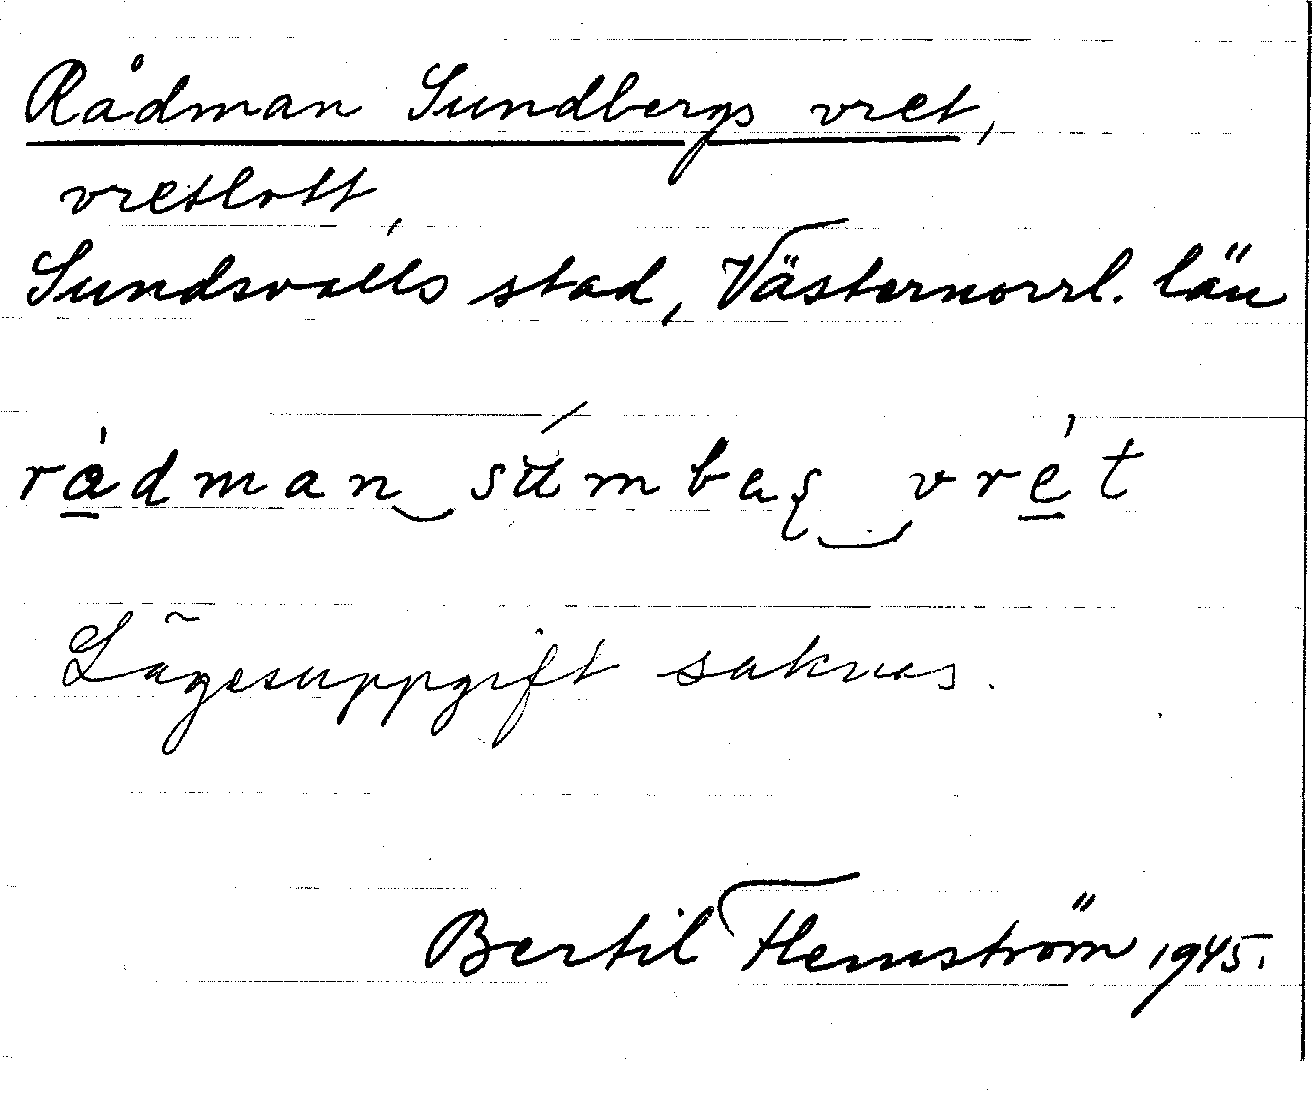 Rådman Sundbergs vret,
vretlott,
Sundsvalls stad, Västernorrl. län
rådman sumbaş vret
Lägesuppgift saknas.
Bertil Flemström 1945.